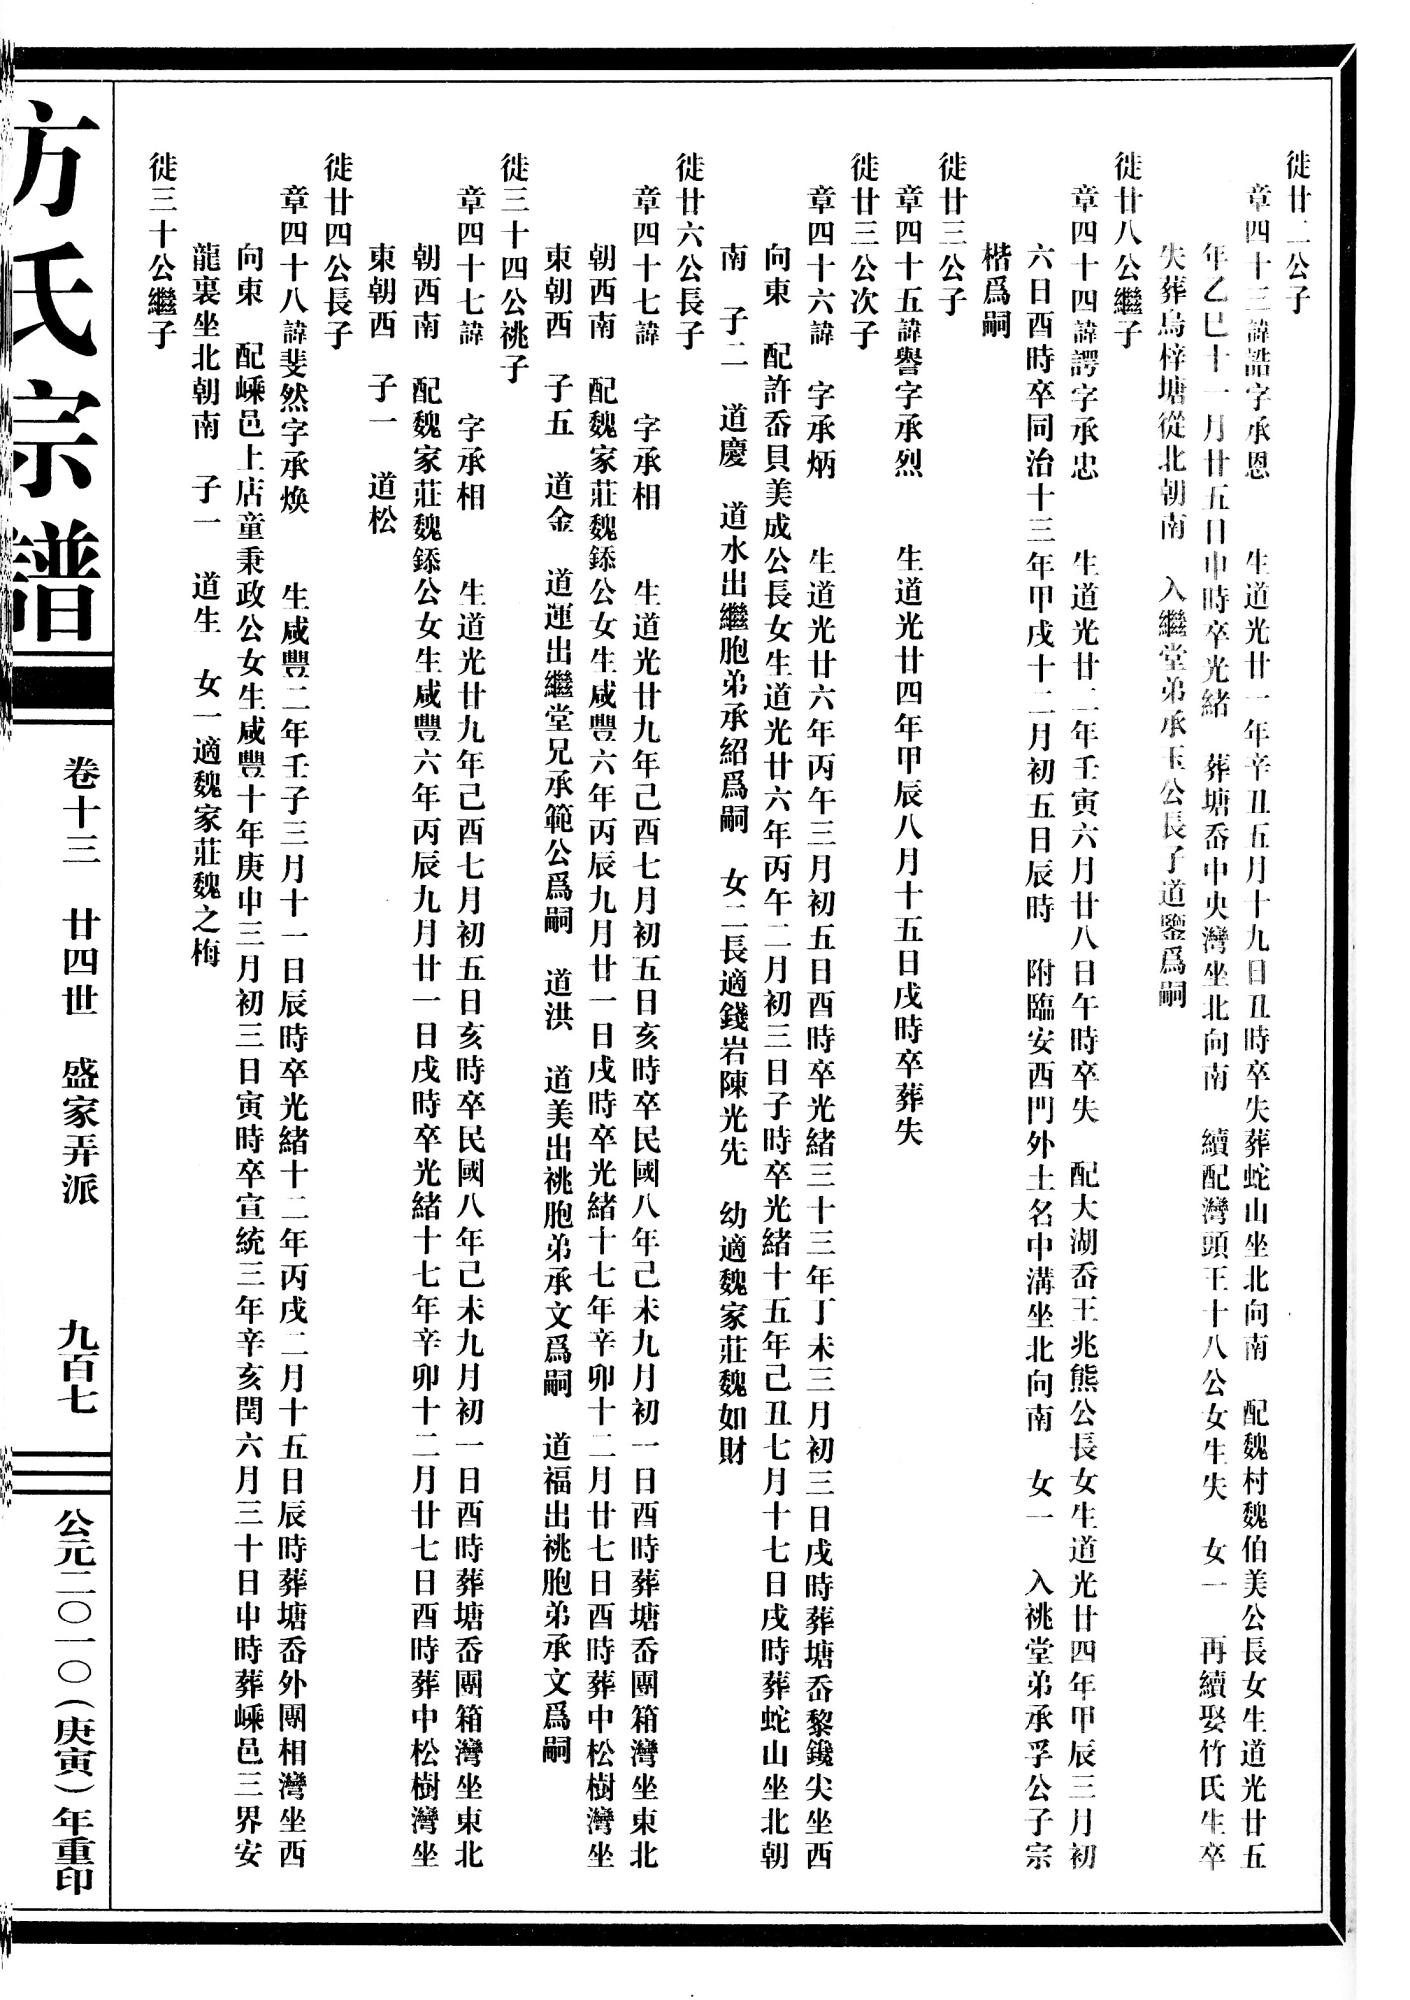 徙廿二公子
章四十三諱誥字承恩　生道光廿一年辛丑五月十九日丑時卒失葬蛇山坐北向南　配魏村魏伯美公長女生道光廿五
年乙巳十一月廿五日申時卒光緒　葬塘岙中央灣坐北向南　續配灣頭王十八公女生失　女一　再續娶竹氏生卒
失葬烏梓塘從北朝南　入繼堂弟承玉公長子道鑒爲嗣
徙廿八公繼子
章四十四諱諤字承忠　生道光廿二年壬寅六月廿八日午時卒失　配大湖岙王兆熊公長女生道光廿四年甲辰三月初
六日酉時卒同治十三年甲戌十二月初五日辰時　附臨安西門外土名中溝坐北向南　女一　入祧堂弟承孚公子宗
楷爲嗣
徙廿三公子
章四十五諱譽字承烈　生道光廿四年甲辰八月十五日戌時卒葬失
徙廿三公次子
章四十六諱　字承炳　生道光廿六年丙午三月初五日酉時卒光緒三十三年丁未三月初三日戌時葬塘岙黎鑱尖坐西
向東　配許岙貝美成公長女生道光廿六年丙午二月初三日子時卒光緒十五年己丑七月十七日戌時葬蛇山坐北朝
南　子二　道慶　道水出繼胞弟承紹爲嗣　女二長適錢岩陳光先　幼適魏家莊魏如財
徙廿六公長子
章四十七諱　字承相　生道光廿九年己酉七月初五日亥時卒民國八年己未九月初一日酉時葬塘岙團箱灣坐東北
朝西南　配魏家莊魏鋉公女生咸豐六年丙辰九月廿一日戌時卒光緒十七年辛卯十二月廿七日酉時葬中松樹灣坐
東朝西　子五　道金　道運出繼堂兄承範公爲嗣　道洪　道美出祧胞弟承文爲嗣　道福出祧胞弟承文爲嗣
徙三十四公祧子
章四十七諱　字承相　生道光廿九年己酉七月初五日亥時卒民國八年己未九月初一日酉時葬塘岙團箱灣坐東北
朝西南　配魏家莊魏鋉公女生咸豐六年丙辰九月廿一日戌時卒光緒十七年辛卯十二月廿七日酉時葬中松樹灣坐
東朝西　子一　道松
徙廿四公長子
章四十八諱斐然字承煥　生咸豐二年壬子三月十一日辰時卒光緒十二年丙戌二月十五日辰時葬塘岙外團相灣坐西
向東　配嵊邑上店童秉政公女生咸豐十年庚申三月初三日寅時卒宣統三年辛亥閏六月三十日申時葬嵊邑三界安
龍裏坐北朝南　子一　道生　女一適魏家莊魏之梅
徙三十公繼子
方氏宗譜
卷十三　廿四世　盛家弄派　九百七
公元二〇一〇（庚寅）年重印